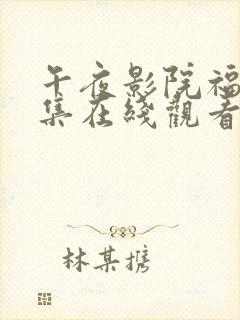 午夜影院福
集在线觀看
林某携